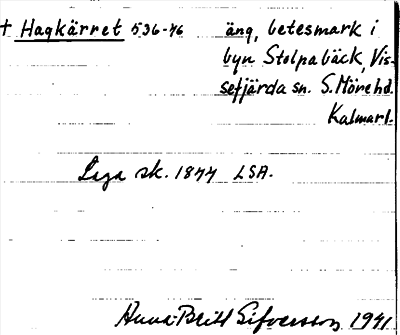 † Hagkärret 536-76 äng, betesmark i
byn Stolpabäck, Vis-
sefjärda sn. S. Möre hd.
Kalmarl.
Laga sk. 1877 LSA.
Anna-Britt Sifversson 1941